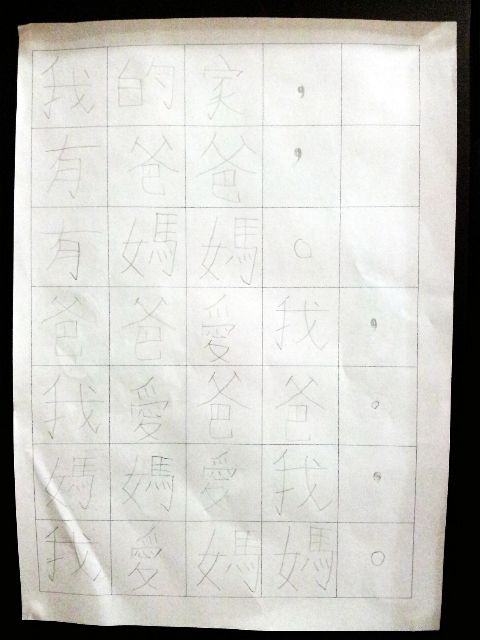 我的家，
有爸爸，
有媽媽。
爸爸愛我，
我愛爸爸。
媽媽愛我，
我愛媽媽。